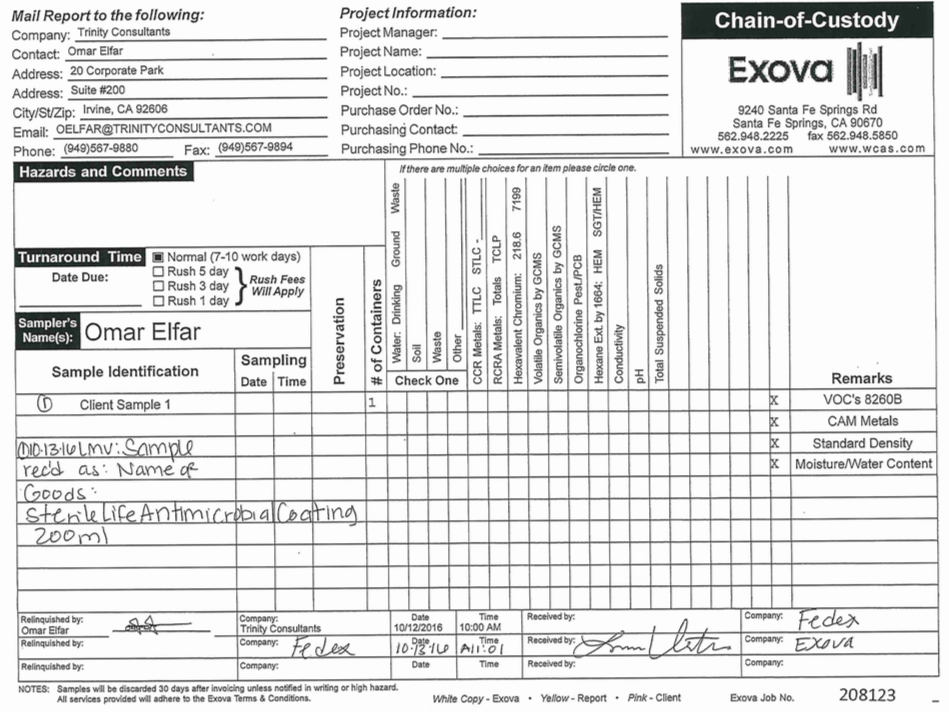 Mail Report to the following:
Company: Trinity Consultants
Contact: Omar Elfar
Address: 20 Corporate Park
Address: Suite #200
City/St/Zip: Irvine, CA 92606
Email: OELFAR@TRINITYCONSULTANTS.COM
Phone: (949)567-9880 Fax: (949)567-9894
Project Information:
Project Manager:
Project Name:
Project Location:
Project No.:
Purchase Order No.:
Purchasing Contact:
Purchasing Phone No.:
Chain-of-Custody
Exova
9240 Santa Fe Springs Rd
Santa Fe Springs, CA 90670
562.948.2225 fax 562.948.5850
www.exova.com www.wcas.com
Hazards and Comments
If there are multiple choices for an item please circle one.
Turnaround Time
Date Due:
Normal (7-10 work days)
Rush 5 day
Rush 3 day
Rush 1 day
Rush Fees
Will Apply
Sampler's
Name(s): Omar Elfar
Sample Identification
Sampling
Date Time
Preservation
# of Containers
Water: Drinking Ground Waste
Soil
Waste
Other
Check One
CCR Metals: TTLC STLC -
RCRA Metals: Totals TCLP
Hexavalent Chromium: 218.6 7199
Volatile Organics by GCMS
Semivolatile Organics by GCMS
Organochlorine Pest./PCB
Hexane Ext. by 1664: HEM SGT/HEM
Conductivity
pH
Total Suspended Solids
Remarks
① Client Sample 1 1 X VOC's 8260B
X CAM Metals
①10-13-16 LMV: Sample X Standard Density
rec'd as: Name of X Moisture/Water Content
Goods:
Sterile Life Antimicrobial Coating
200ml
Relinquished by: Company: Date Time Received by: Company: Fedex
Omar Elfar Trinity Consultants 10/12/2016 10:00 AM
Relinquished by: Company: Fedex Date 10-13-16 Time A11:01 Received by: Company: Exova
Relinquished by: Company: Date Time Received by: Company:
NOTES: Samples will be discarded 30 days after invoicing unless notified in writing or high hazard.
All services provided will adhere to the Exova Terms & Conditions.
White Copy - Exova • Yellow - Report • Pink - Client
Exova Job No. 208123